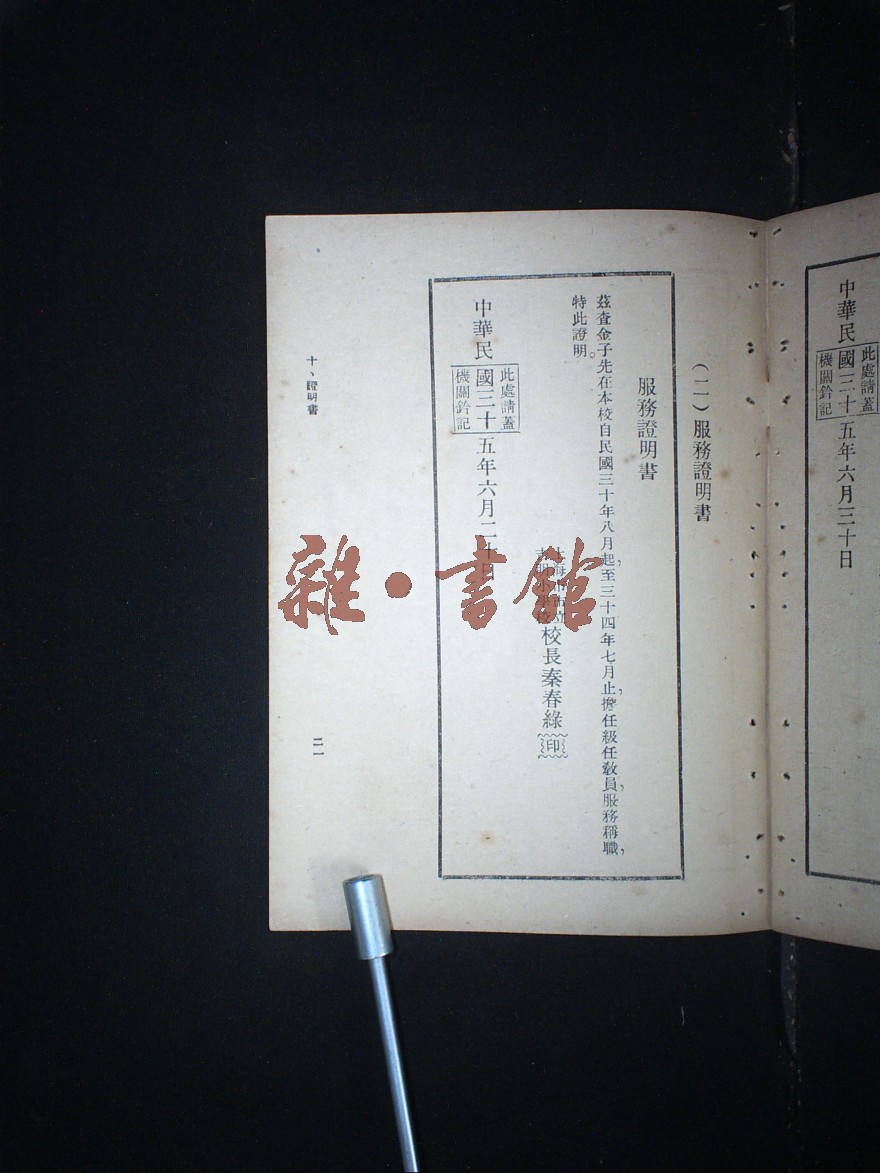 中華民國三十五年六月三十日
此處請蓋
機關鈐記
(二)服務證明書
服務證明書
茲查金子先在本校自民國三十年八月起,至三十四年七月止,擔任級任敎員,服務稱職,
特此證明。
校長秦春綠 印
中華民國三十五年六月二十日
此處請蓋
機關鈐記
十、證明書
二一
雜·書館